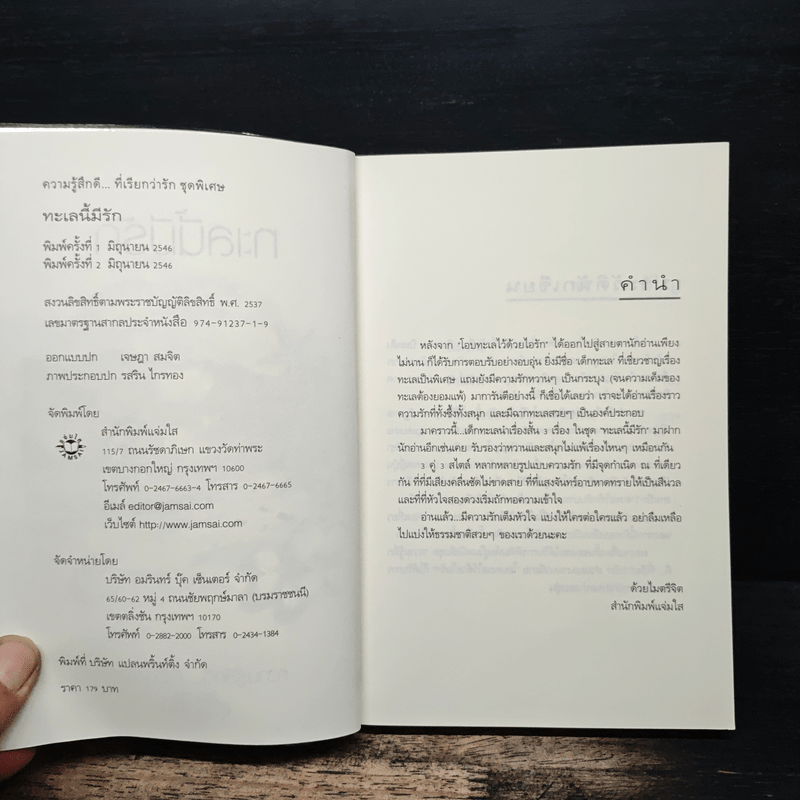 ความรู้สึกดี... ที่เรียกว่ารัก ชุดพิเศษ
ทะเลนี้มีรัก
พิมพ์ครั้งที่ 1 มิถุนายน 2546
พิมพ์ครั้งที่ 2 มิถุนายน 2546
สงวนลิขสิทธิ์ตามพระราชบัญญัติลิขสิทธิ์ พ.ศ. 2537
เลขมาตรฐานสากลประจำหนังสือ 974-91237-1-9
ออกแบบปก เจษฎา สมจิต
ภาพประกอบปก รสริน ไกรทอง
จัดพิมพ์โดย
สำนักพิมพ์แจ่มใส
115/7 ถนนรัชดาภิเษก แขวงวัดท่าพระ
เขตบางกอกใหญ่ กรุงเทพฯ 10600
โทรศัพท์ 0-2467-6663-4 โทรสาร 0-2467-6665
อีเมล์ editor@jamsai.com
เว็บไซต์ http://www.jamsai.com
จัดจำหน่ายโดย
บริษัท อมรินทร์ บุ๊ค เซ็นเตอร์ จำกัด
65/60-62 หมู่ 4 ถนนชัยพฤกษ์มาลา (บรมราชชนนี)
เขตตลิ่งชัน กรุงเทพฯ 10170
โทรศัพท์ 0-2882-2000 โทรสาร 0-2434-1384
พิมพ์ที่ บริษัท แปลนพริ้นท์ติ้ง จำกัด
ราคา 179 บาท
คำนำ
หลังจาก "โอบทะเลไว้ด้วยไอรัก" ได้ออกไปสู่สายตานักอ่านเพียง
ไม่นาน ก็ได้รับการตอบรับอย่างอบอุ่น ยิ่งมีชื่อ 'เด็กทะเล' ที่เชี่ยวชาญเรื่อง
ทะเลเป็นพิเศษ แถมยังมีความรักหวานๆ เป็นกระบุง (จนความเค็มของ
ทะเลต้องยอมแพ้) มาการันตีอย่างนี้ ก็เชื่อได้เลยว่า เราจะได้อ่านเรื่องราว
ความรักที่ทั้งซึ้งทั้งสนุก และมีฉากทะเลสวยๆ เป็นองค์ประกอบ
มาคราวนี้...เด็กทะเลนำเรื่องสั้น 3 เรื่อง ในชุด "ทะเลนี้มีรัก" มาฝาก
นักอ่านอีกเช่นเคย รับรองว่าหวานและสนุกไม่แพ้เรื่องไหนๆ เหมือนกัน
3 คู่ 3 สไตล์ หลากหลายรูปแบบความรัก ที่มีจุดกำเนิด ณ ที่เดียว
กัน ที่ที่มีเสียงคลื่นซัดไม่ขาดสาย ที่ที่แสงจันทร์อาบหาดทรายให้เป็นสีนวล
และที่ที่หัวใจสองดวงเริ่มถักทอความเข้าใจ
อ่านแล้ว...มีความรักเต็มหัวใจ แบ่งให้ใครต่อใครแล้ว อย่าลืมเหลือ
ไปแบ่งให้ธรรมชาติสวยๆ ของเราด้วยนะคะ
ด้วยไมตรีจิต
สำนักพิมพ์แจ่มใส